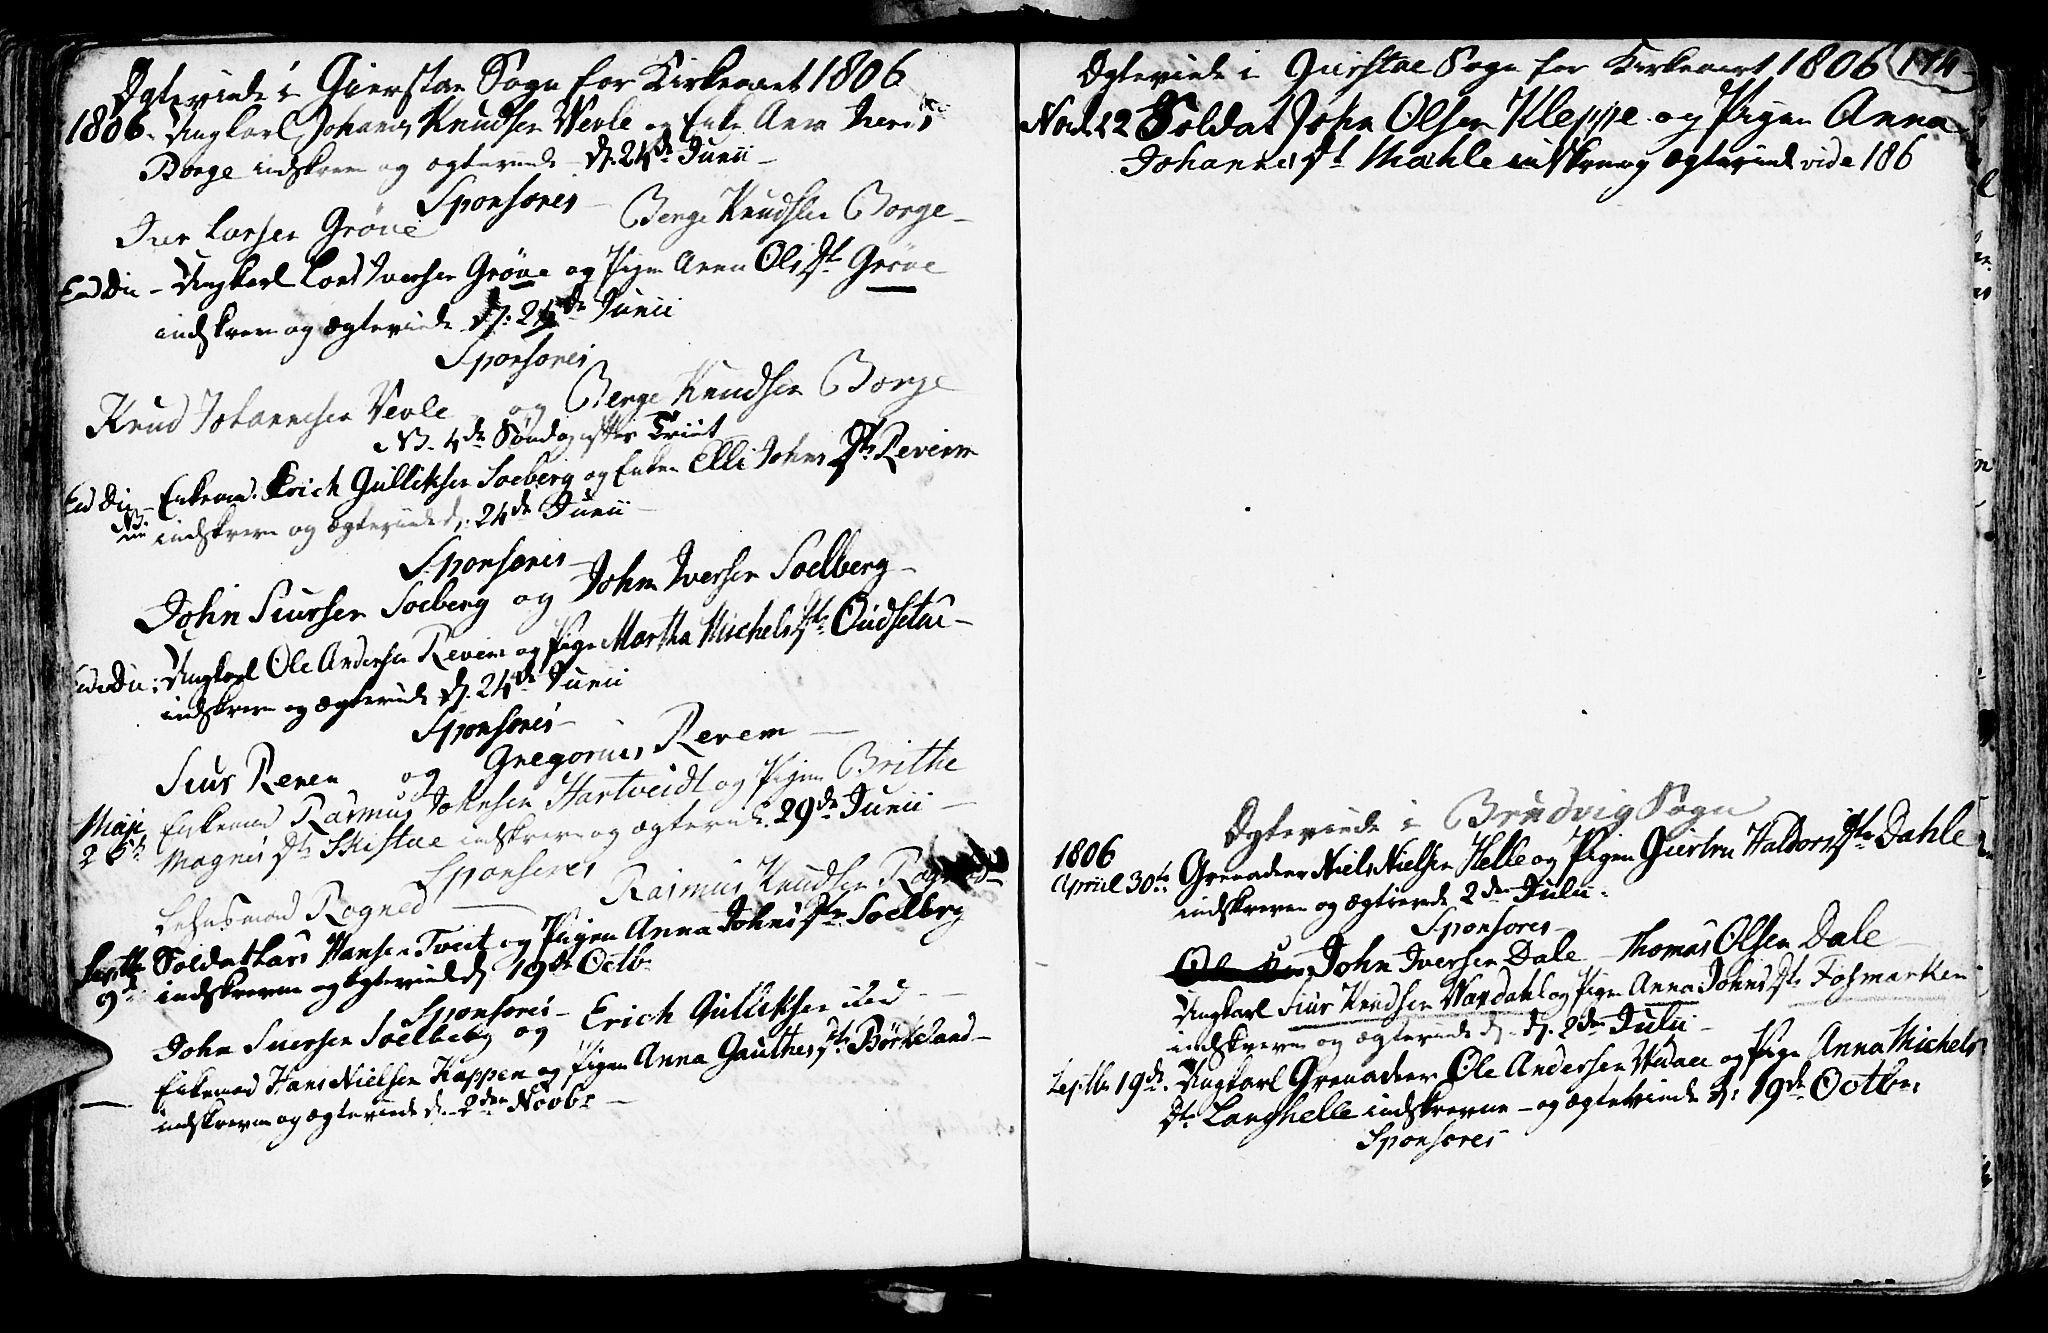 Ægteviede i Gierstae Sogn for Kirkeaaret 1806
1806. Ungkarl Johannes Knudsen Nevle og Enke Anna
Borge indskreven og ægteviede d. 24de Junii
Sponsores
Iver Larsen Grøve Berge Knudsen Borge
Eod Die Ungkarl Lars Iversen Grøve og Pigen Anna Ols Dt Grøve
indskreven og Ægteviede d: 24de Junii
Sponsores
Knud Johannesen Nevle og Berge Knudsen Borge
NB. 4de Søndag efter Triit
Eod Die Enkemand Erich Gulliksen Soeberg og Enken Elli Johns Dtr Reveim
NB. indskreven og Ægteviede d. 24de Junii
Sponsores
John Siursen Soeberg og John Iversen Soelberg
Ungkarl Ole Andersen Reveim og Pige Martha Michels Dtr
indskreven og Ægteviede d. 24de Junii
Sponsores
Siur Reven og Gregorius Revem
Maji Enkemand Rasmus Johnsen Hartveidt og Pigen Brithe
25de Magnes Dtr Skistae indskreven og ægteviede 29de Junii
Sponsores
Lehnsmand Rogned Rasmus Knudsen
Septbr Soldat Lars Hansen Tveit og Pigen Anna Johns Dtr Soelberg
9de indskreven og Ægteviede d 19de Octbr
Sponsores
John Siversen Soelberg og Erich Gulliksen
Enkemand Hans Nielsen Kappen og Pigen Anna Gauthes Dtr Børkeland
indskreven og ægteviede d. 2den Novbr
Ægteviede i Gierstae Sogn for Kirkeaaret 1806 174
Nov. 22 Soldat John Olsen Kleppe og Pigen Anna
Johannes Dt Mæhle indskrev og Ægteviede vide 186
Ægteviede i Brudvig Sogn
1806
Apriil 30te Grenadeer Niels Nielsen Helle og Pigen Giertru Haldors Dtr Dahle
indskreven og Ægteviede 2den Julii
Sponsores
John Iversen Dale Thomas Olsen Dale
Ungkarl Siur Knudsen Vardahl og Pigen Anna Johns Dtr Fosmarken
indskreven og Ægteviede d. 2den Julii
Septbr 19de. Ungkarl Grenadeer Ole Andersen og Pige Anna Michels
Dtr Langhelle indskrevne og ægteviede d: 19de Octbr:
Sponsores